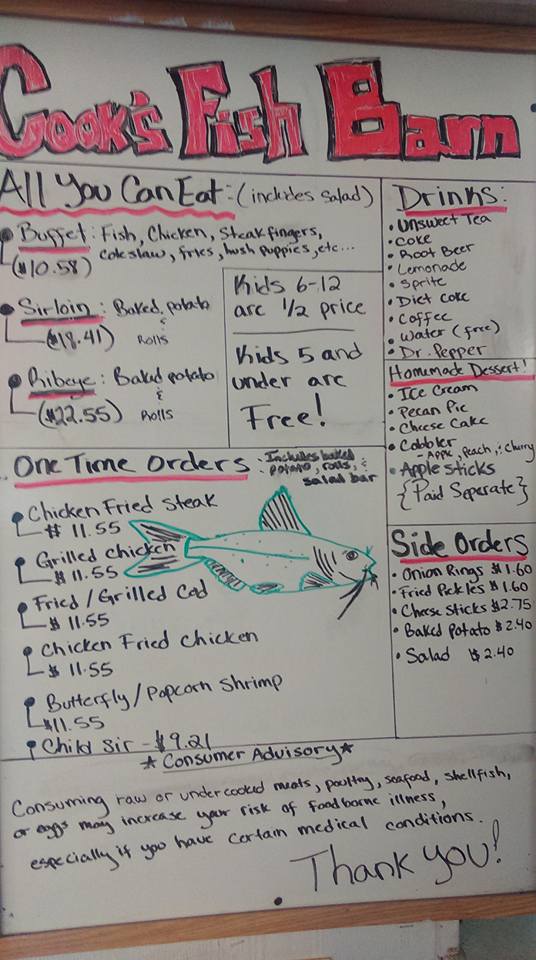 Cook's Fish Barn
All You Can Eat: (includes salad)
Buffet: Fish, Chicken, Steak fingers,
coleslaw, fries, hush puppies, etc...
($10.58)
Sirloin: Baked potato
&
Rolls
Ribeye: Baked potato
&
Rolls
($22.55)
Kids 6-12
are 1/2 price
Kids 5 and
under are
Free!
Drinks:
Unsweet Tea
Coke
Root Beer
Lemonade
Sprite
Diet Coke
Coffee
Water (free)
Dr. Pepper
Homemade Dessert!
Ice Cream
Pecan Pie
Cheese Cake
Cobbler
- Apple, Peach, & Cherry
Apple sticks
{Paid Seperate}
One Time Orders: Includes baked
potato, rolls, &
salad bar
Chicken Fried Steak
$ 11.55
Grilled chicken
$ 11.55
Fried/Grilled Cod
$ 11.55
Chicken Fried Chicken
$ 11.55
Butterfly/Popcorn Shrimp
$11.55
Child Sir - $9.21
Side Orders
Onion Rings $1.60
Fried Pickles $1.60
Cheese Sticks $2.75
Baked Potato $2.40
Salad $2.40
* Consumer Advisory *
Consuming raw or undercooked meats, poultry, seafood, shellfish,
or eggs may increase your risk of foodborne illness,
especially if you have certain medical conditions.
Thank you!